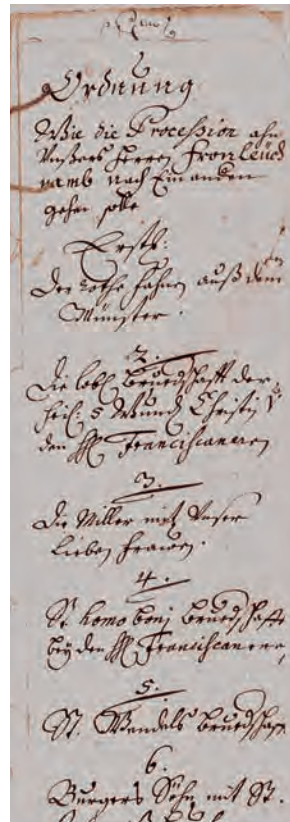 Ordnung
Wie die Procession ahn
Unsers Herren Fronleich
namb nach Einanden
gehen solle
Erstl:
Der rothe fahnen auß dem
Münster.
2.
Die lobl. Bruedschafft der
heil: 5 Wund Christi
den HH Franciscaneren
3.
Die Miller mit Unser
Lieben frawen.
4.
St. homo boni bruedschafft
bey den HH Franciscanern,
5.
St. Wendels bruedschafft
6.
Burgers Söhn mit St.